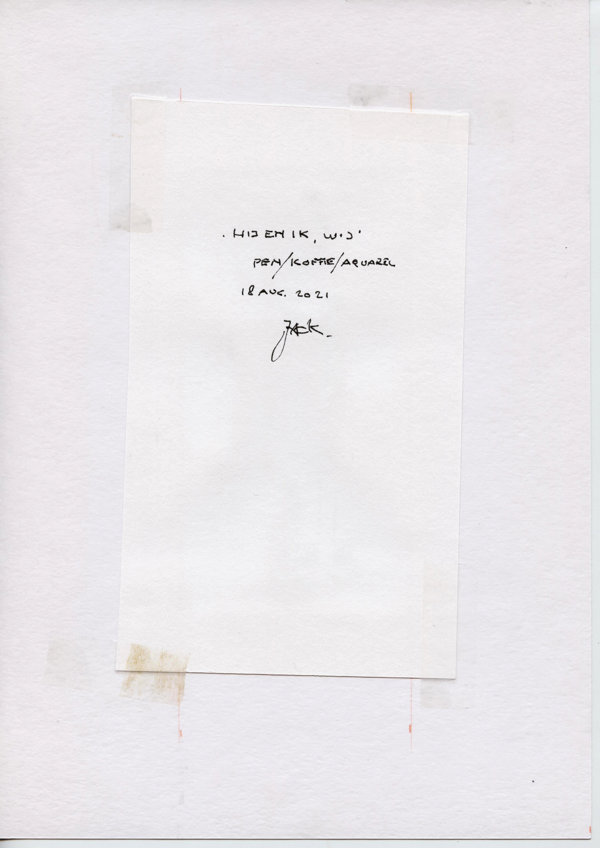 'HIJ EN IK, WIJ'
PEN/KOFFIE/AQUAREL
18 AUG. 2021
Jack.